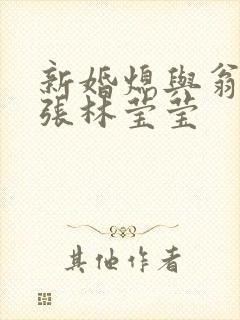 新婚熄與翁
張林莹莹
其他作者